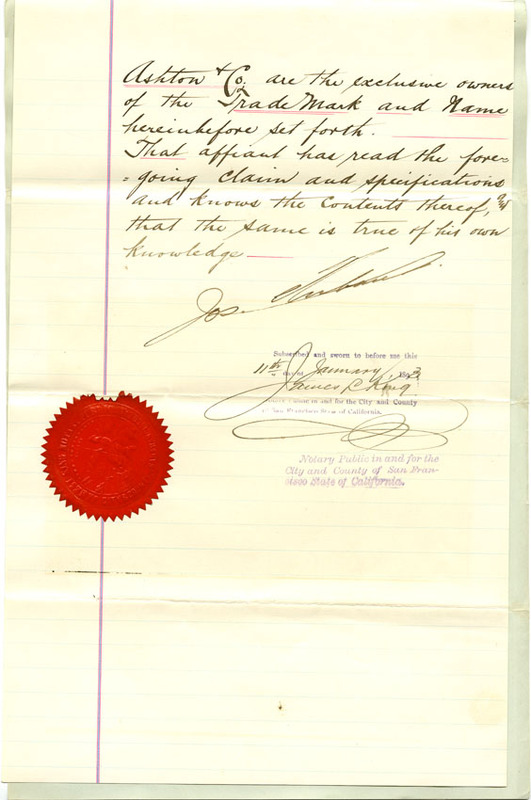 Ashton & Co. are the exclusive owners
of the Trade Mark and Name
hereinbefore set forth.
That affiant has read the fore-
=going Claim and specifications
and knows the Contents thereof, and
that the same is true of his own
knowledge
Jos.
Subscribed and sworn to before me this
11th day of January, 1893
James L. King
Notary Public in and for the City and County
of San Francisco State of California.
Notary Public in and for the
City and County of San Fran-
cisco State of California.